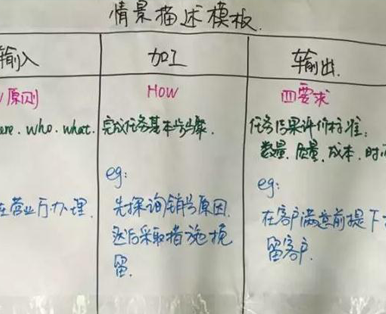 情景描述模板
输入
加工
输出
原则
HOW
四要求
ere. who. what.
完成任务基本步骤.
任务结果评价标准:
数量.质量.成本.时
在营业厅办理.
eg:
先探询销号原因
然后采取措施挽
留.
eg:
在客户满意前提下
留客户.